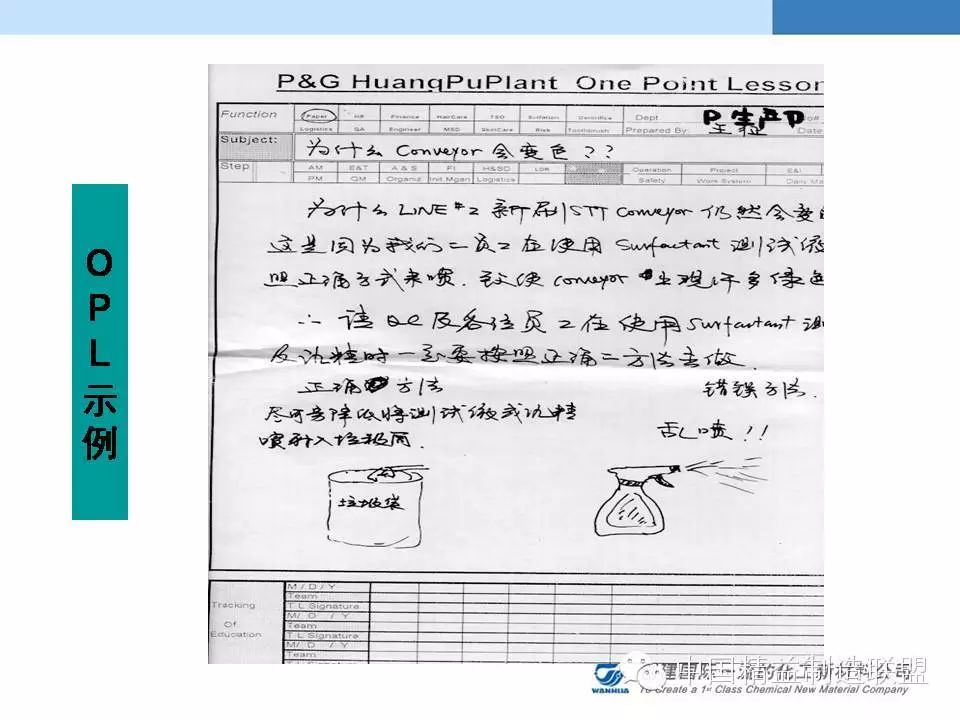 P&G HuangPuPlant One Point Lesson
Function Paper HR Finance HairCare TSD Dept P 生产部
Logistics QA Engineer MSD SkinCare Risk Toothbrush Prepared By: Date
Subject: 为什么 Conveyor 会变色??
Step AM E&T A & S FI H&SD LDR Operation Project E&I
PM QM Organiz Init.Mgan Logistics Safety Work System
为什么 LINE #2 新刷 STT Conveyor 仍然会变
这是因为我们的员工在使用 Surfactant 测试液
照正确方式来喷. 致使 conveyor 出现许多绿色
∴ 请 QC 及各位员工在使用 Surfactant 测
及酒精时一定要按照正确的方法去做.
正确 方法
错误方法.
尽可能降低将测试液或酒精
喷射入垃圾
乱喷!!
垃圾袋
OPL示例
Tracking
Of
Education
M / D / Y
Team
T L Signature
M / D / Y
Team
T L Signature
M / D / Y
Team
WANHUA
中国精益制造联盟
To Create a 1st Class Chemical New Material Company